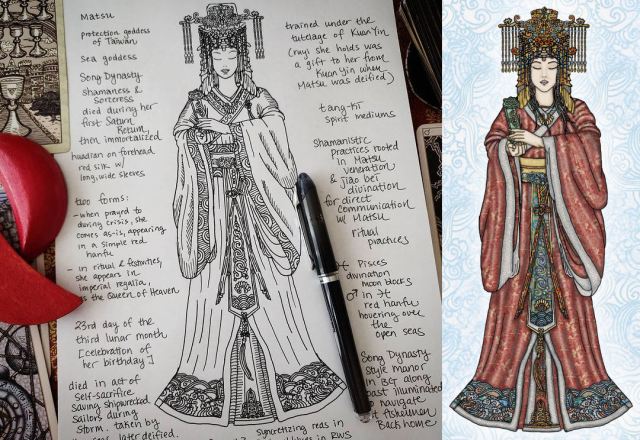 Matsu
protection goddess
of Taiwan
Sea goddess
Song Dynasty
Shamaness &
Sorceress
died during her
first Saturn
Return,
then immortalized
huadian on forehead
red silk w/
long, wide sleeves
two forms:
- when prayed to
during crisis, she
comes as-is, appearing
in a simple red
hanfu
- in ritual & festivities,
she appears in
imperial regalia,
as the Queen of Heaven
23rd day of the
third lunar month
[celebration of
her birthday]
died in act of
self-sacrifice
saving shipwrecked
sailors during
storm. taken by
later deified.
trained under the
tutelage of Kuan Yin
(ruyi she holds was
a gift to her from
Kuan Yin when
Matsu was deified)
tang-ki
spirit mediums
Shamanistic
practices rooted
in Matsu
veneration
& jiao bei
divination
for direct
communication
w/ Matsu
ritual
practices
♓ Pisces
divination
moon blocks
♂ in ♓
red hanfu
hovering over
the
open seas
Song Dynasty
style manor
in BG along
coast illuminated
to navigate
fishermen
back home
syncretizing seas in
in RWS